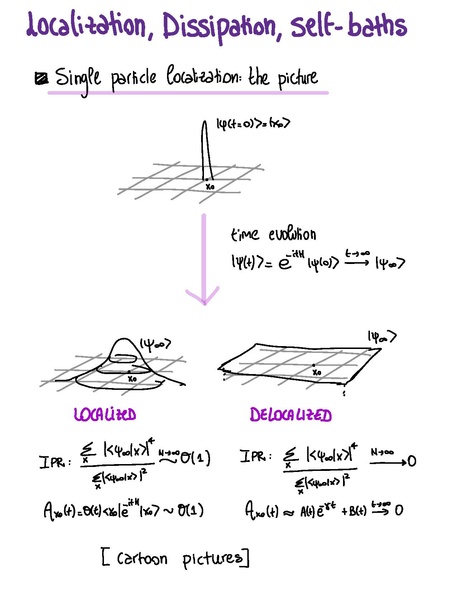 Localization, Dissipation, self-baths
Single particle localization: the picture
|ψ(t=0)⟩=|x₀⟩
x₀
time evolution
|ψ(t)⟩ = e^{-itH} |ψ(0)⟩ →^{t→∞} |ψ∞⟩
|ψ∞⟩
x₀
|ψ∞⟩
x₀
LOCALIZED
DELOCALIZED
IPR: Σₓ |⟨ψ∞|x⟩|⁴ / Σₓ |⟨ψ∞|x⟩|² ~^{N→∞} O(1)
IPR: Σₓ |⟨ψ∞|x⟩|⁴ / Σₓ |⟨ψ∞|x⟩|² →^{N→∞} 0
Aₓ₀(t)=θ(t)⟨x₀|e^{-itH}|x₀⟩ ~ O(1)
Aₓ₀(t) ≈ A(t)e^{-γt} + B(t) →^{t→∞} 0
[ cartoon pictures ]